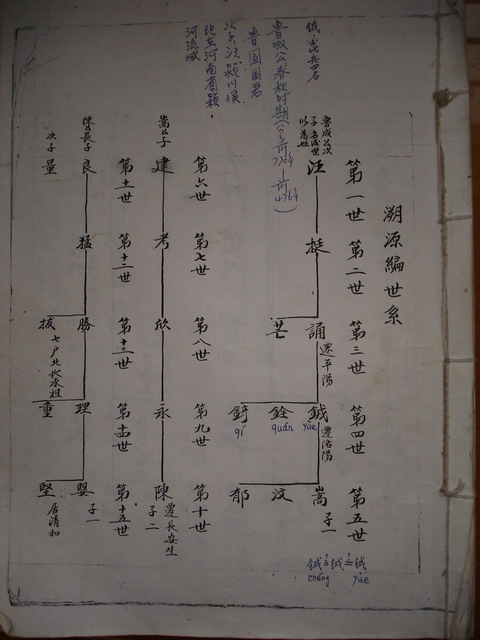 溯源編世系
第一世
第二世
第三世
第四世
第五世
魯成公次
子名汪世
以爲姓
汪
挺
誦
遷平陽
芒
鉞
yüe
遷洛陽
銓
quán
錡
qí
嵩
子一
汶
郁
第六世
第七世
第八世
第九世
第十世
嵩公子
建
考
欣
永
陳
遷長安生
子二
第十一世
第十二世
第十三世
第十四世
第十五世
陳公長子
良
次子
量
猛
勝
拔
七戶北水承祖
理
重
嬰
子一
堅
居清和
魯成公春秋时期
魯国国君
次子汪颍川侯
现在河南省颍
河流域
yüe